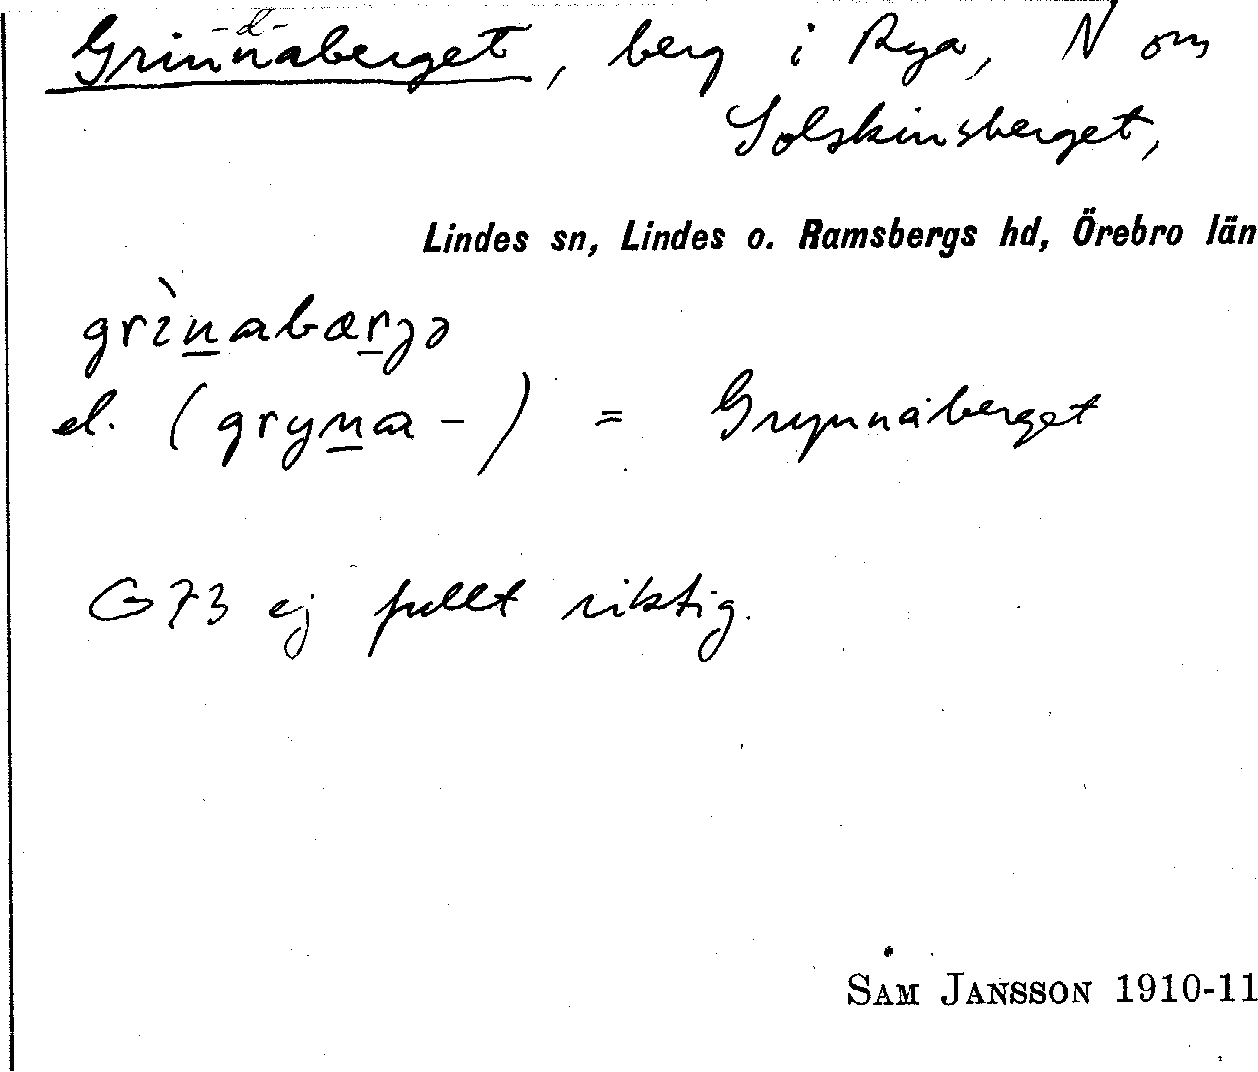 -d-
Grinnaberget, berg i Rya, N om
Solskinsberget,
Lindes sn, Lindes o. Ramsbergs hd, Örebro län
grìn̲abær̲gə
el. (gryn̲a-) = Grynnaberget
G73 ej fullt riktig.
SAM JANSSON 1910-11